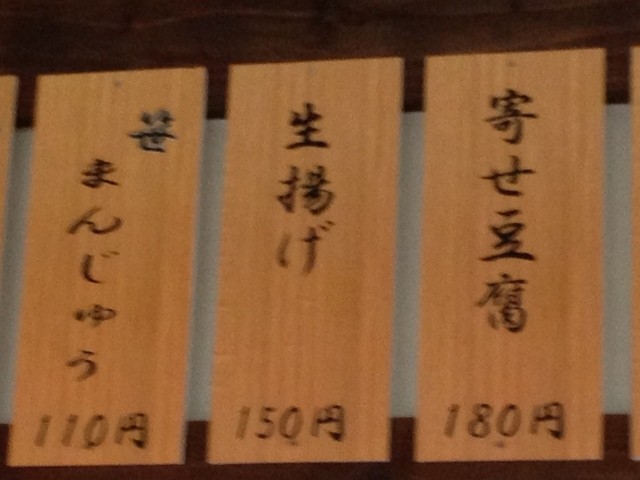 寄せ豆腐
180円
生揚げ
150円
笹
まんじゅう
110円